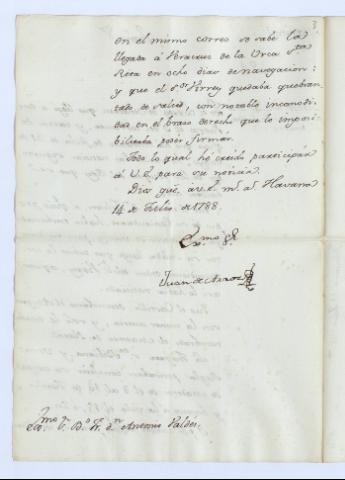 3
en el mismo correo se sabe la
llegada á Veracruz de la Urca Sta
Rita en ocho dias de navegacion:
y que el Sor Virrey quedaba quebran-
tado de salud, con notable incomodi-
dad en el brazo derecho que lo imposi-
bilitaba poder firmár.
Todo lo qual he creido participár
á V.E. para su noticia.
Dios gue. a V.E. ms. as. Havana
14 de Febo. de 1788.
Exmo. Sor.
Juan de Araoz
Exmo. Sr. Bo. Fr. Dn. Antonio Valdés.